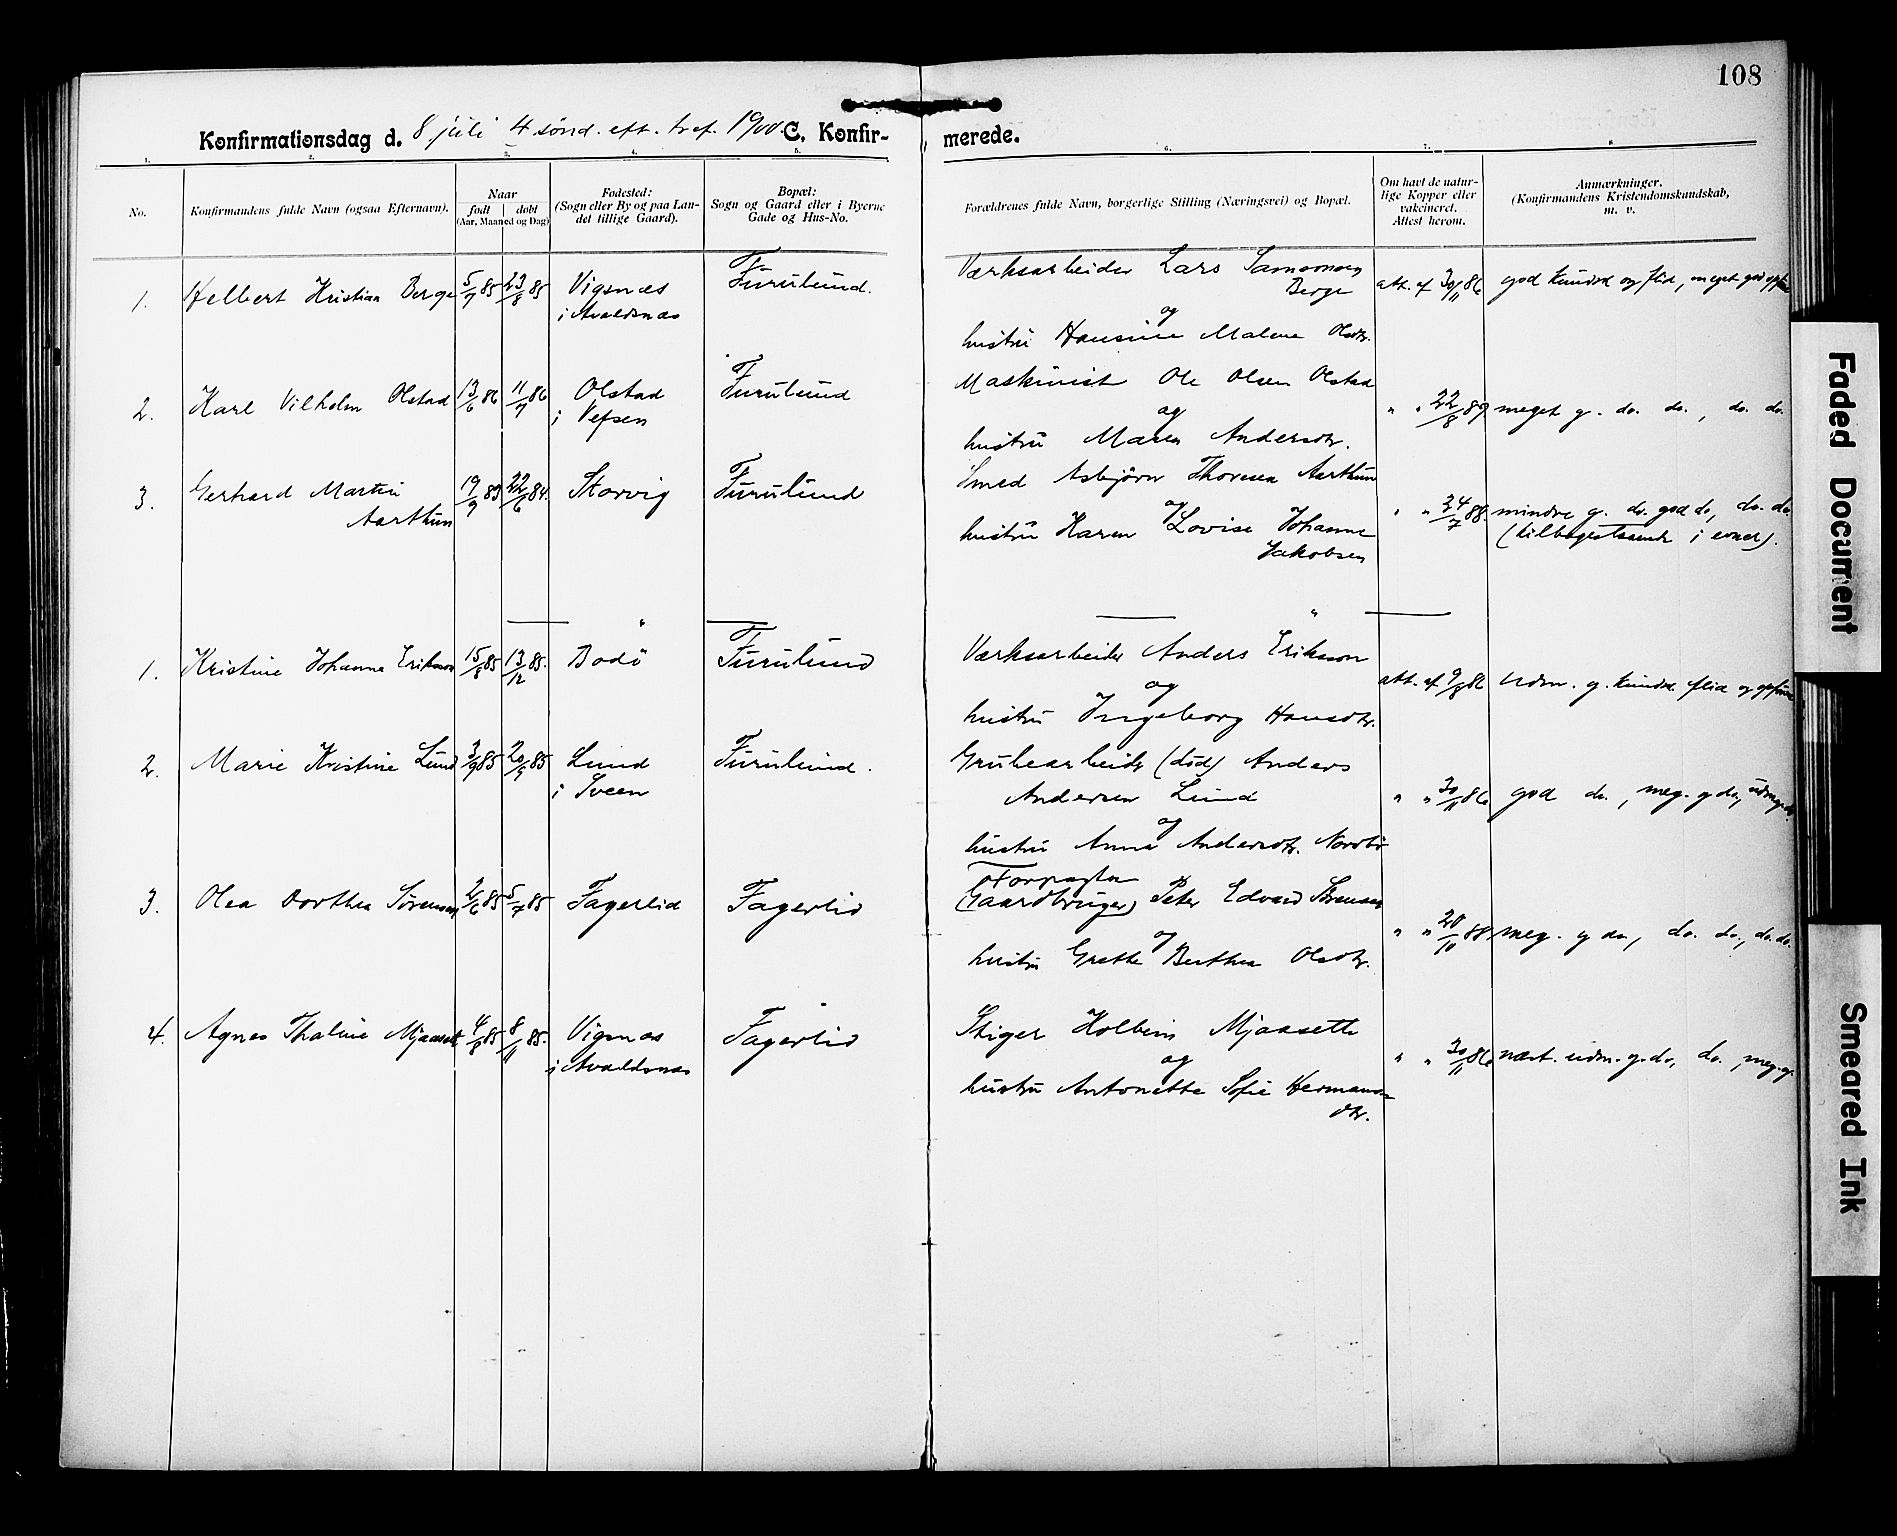 108
Konfirmationsdag d. 8 juli 4 sønd. eft. tref. 1900. C. Konfir-
merede.
1. 2. 3. 4. 5. 6. 7. 8.
No.
Konfirmandens fulde Navn (ogsaa Efternavn).
Naar
født døbt
(Aar, Maaned og Dag)
Fødested:
(Sogn eller By og paa Lan-
det tillige Gaard).
Bopæl:
Sogn og Gaard eller i Byerne
Gade og Hus-No.
Forældrenes fulde Navn, borgerlige Stilling (Næringsvei) og Bopæl.
Om havt de natur-
lige Kopper eller
vakcineret.
Attest herom.
Anmærkninger.
(Konfirmandens Kristendomskundskab,
m. v.
1. Helbert Kristian Berge 5/7 85 23/8 85 Vigsnæs Furulund. Værksarbeider Lars
i Avaldsnæs Berge att. af 30/11 86 god kundsk og flid, meget god opf
og
hustru Hansine Malene Olsdtr.
2. Karl Vilhelm Olstad 13/6 86 11/7 86 Olstad Furulund Maskinist Ole Olsen Olstad
i Vefsen og " " 22/8 89 meget g. do. do., do. do.
hustru Maren Andersdtr.
3. Gerhard Martin 19/9 83 22/6 84. Storvig Furulund Smed Asbjørn Thoresen Aarthun
Aarthun og " " 24/7 88. mindre g. do. god do, do. do
hustru Karen Lovise Johanne (tilbagestaaende i evner).
Jakobsen
— " — — " —
1. Kristine Johanne Erikson 15/8 85 13/12 85. Bodö Furulund Værksarbeider Anders Erikson
og att. af 9/8 86 udm. g. kundsk. flid og opførs
hustru Ingeborg Hansdtr.
2. Marie Kristine Lund 3/9 85 20/9 85 Lund Furulund. Grubearbeider (död) Anders
i Sveen Andersen Lund " " 30/11 86 god do., meg. g do,
og
hustru Anna Andersdtr. Nordbö
3. Olea Dorthea Sørensen 2/6 85 5/7 85 Fagerlid Fagerlid Forpagter
(Gaardbruger) Peter Edvard Sörensen
og " " 28/10 88. meg. g do, do. do., do. do.
hustru Grethe Berthea Olsdtr.
4. Agnes Thaline Mjaaseth 4/8 85 8/11 85. Vigsnæs Fagerlid Stiger Kolbein Mjaaseth
i Avaldsnæs og " " 30/11 86 næst. udm. g. do, do., meg. g.
hustru Antonette Sofie Hermans-
dtr.
Faded Document
Smeared Ink